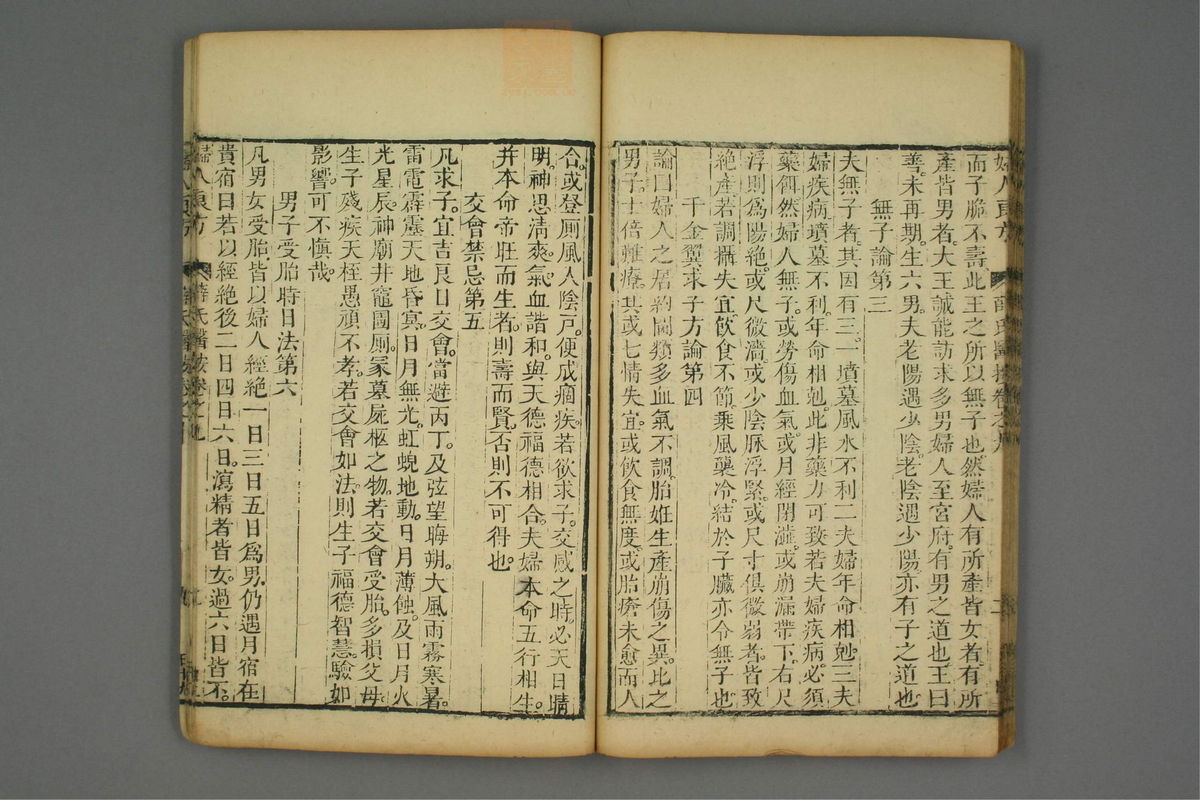 而子脆不壽此王之所以無子也然婦人有所產皆女者有所
產皆男者大王誠能訪求多男婦人至宮府有男之道也王曰
善未再期生六男夫老陽遇少陰老陰遇少陽亦有子之道也
無子論第三
夫無子者其因有三一墳墓風水不利二夫婦年命相剋三夫
婦疾病墳墓不利年命相剋此非藥力可致若夫婦疾病必須
藥餌然婦人無子或勞傷血氣或月經閉澁或崩漏帶下右尺
浮則為陽絕或尺微濇或少陰脉浮緊或尺寸俱微弱者皆致
絕產若調攝失宜飲食不節乘風藥冷結於子臟亦令無子也
千金翼求子方論第四
論曰婦人之居約閫類多血氣不調胎姙生產崩傷之異比之
男子十倍難療其或七情失宜或飲食無度或胎瘡未愈而人
合或登厠風人陰戸便成痼疾若欲求子交感之時必天日晴
明神思清爽氣血諧和與天德福德相合夫婦本命五行相生
并本命帝旺而生者則壽而賢否則不可得也
交會禁忌第五
凡求子宜吉良日交會當避丙丁及弦望晦朔大風雨霧寒暑
雷電霹靂天地昏冥日月無光虹蜺地動日月薄蝕及日月火
光星辰神廟井竈圊厠冢墓屍柩之物若交會受胎多損父母
生子殘疾夭枉愚頑不孝若交會如法則生子福德智慧驗如
影響可不慎哉
男子受胎時日法第六
凡男女受胎皆以婦人經絕一日三日五日為男仍遇月宿在
貴宿日若以經絕後二日四日六日瀉精者皆女過六日皆不